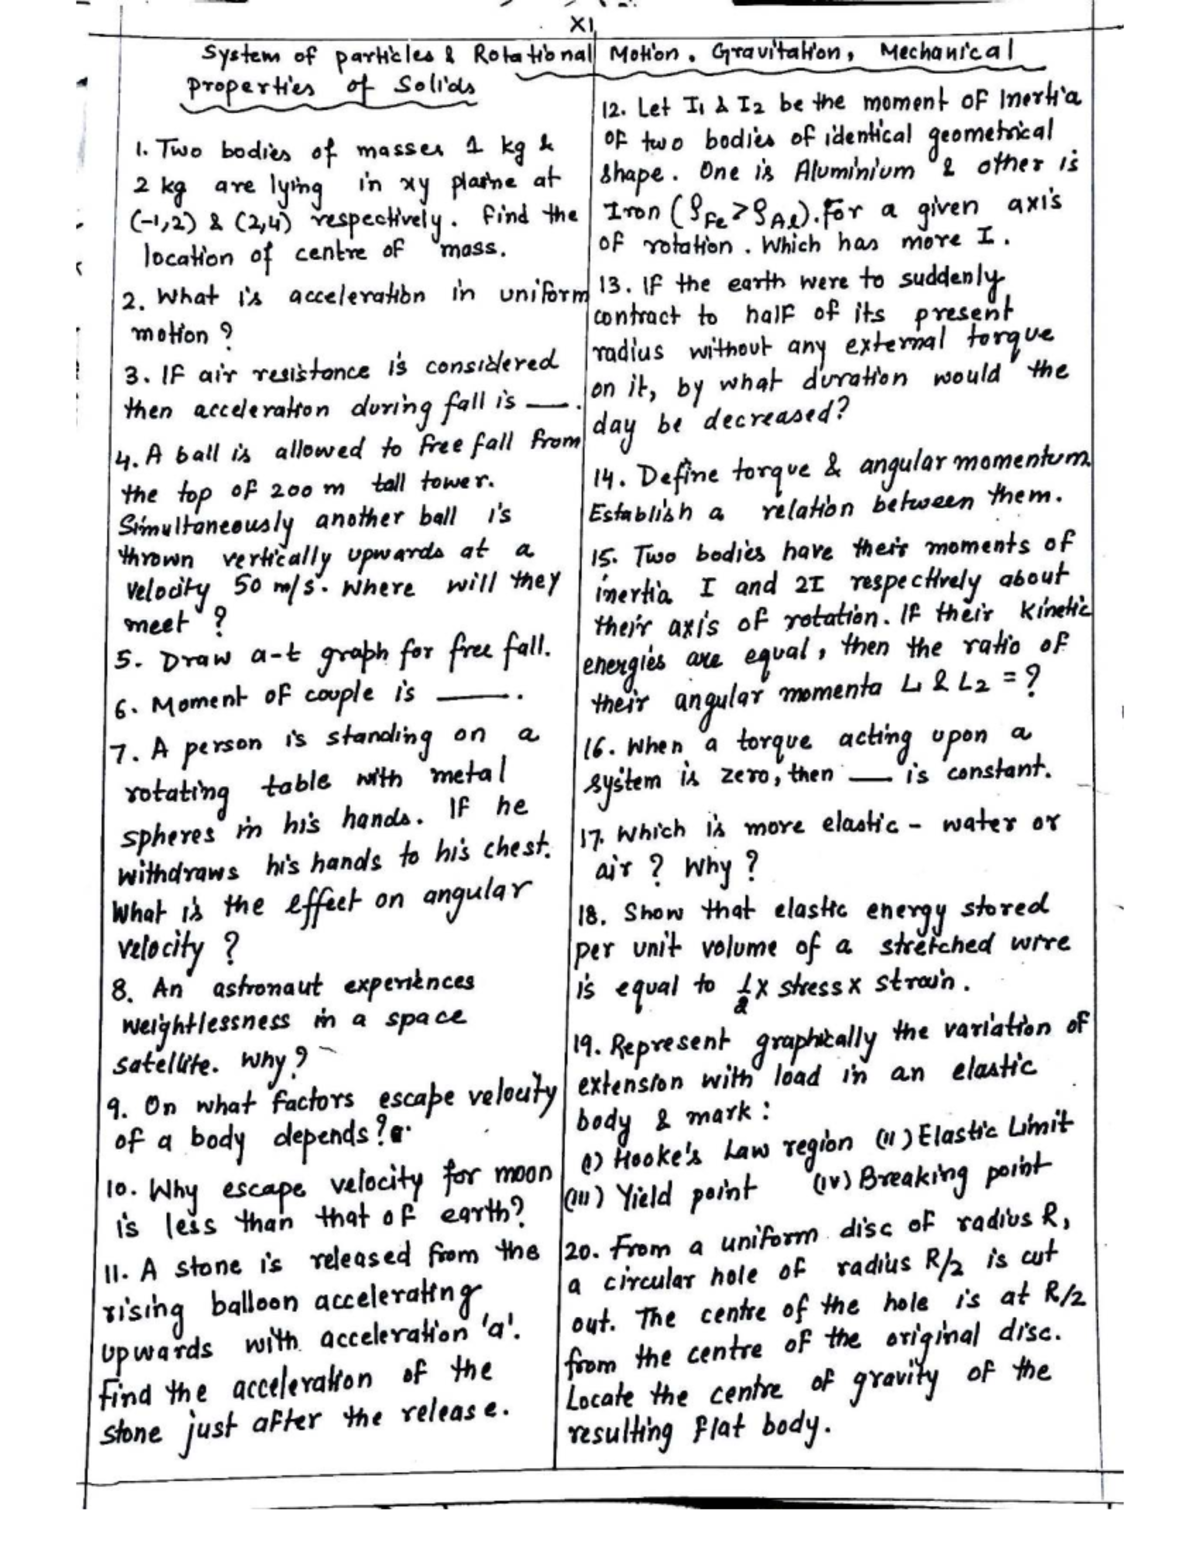 XI
System of particles & Rotational Motion, Gravitation, Mechanical
Properties of Solids
1. Two bodies of masses 1 kg &
2 kg are lying in xy plane at
(-1,2) & (2,4) respectively. Find the
location of centre of mass.
2. What is acceleration in uniform
motion?
3. If air resistance is considered
then acceleration during fall is ___.
4. A ball is allowed to free fall from
the top of 200 m tall tower.
Simultaneously another ball is
thrown vertically upwards at a
velocity 50 m/s. Where will they
meet?
5. Draw a-t graph for free fall.
6. Moment of couple is ___.
7. A person is standing on a
rotating table with metal
spheres in his hands. If he
withdraws his hands to his chest.
What is the effect on angular
velocity?
8. An astronaut experiences
weightlessness in a space
satellite. Why?
9. On what factors escape velocity
of a body depends?
10. Why escape velocity for moon
is less than that of earth?
11. A stone is released from the
rising balloon accelerating
upwards with acceleration 'a'.
Find the acceleration of the
stone just after the release.
12. Let I₁ & I₂ be the moment of Inertia
of two bodies of identical geometrical
shape. One is Aluminium & other is
Iron (ρFe > ρAl). For a given axis
of rotation. Which has more I.
13. If the earth were to suddenly
contract to half of its present
radius without any external torque
on it, by what duration would the
day be decreased?
14. Define torque & angular momentum.
Establish a relation between them.
15. Two bodies have their moments of
inertia I and 2I respectively about
their axis of rotation. If their kinetic
energies are equal, then the ratio of
their angular momenta L₁ & L₂ = ?
16. When a torque acting upon a
system is zero, then ___ is constant.
17. Which is more elastic - water or
air? Why?
18. Show that elastic energy stored
per unit volume of a stretched wire
is equal to ½ x stress x strain.
19. Represent graphically the variation of
extension with load in an elastic
body & mark:
(i) Hooke's Law region (ii) Elastic Limit
(iii) Yield point (iv) Breaking point
20. From a uniform disc of radius R,
a circular hole of radius R/2 is cut
out. The centre of the hole is at R/2
from the centre of the original disc.
Locate the centre of gravity of the
resulting flat body.